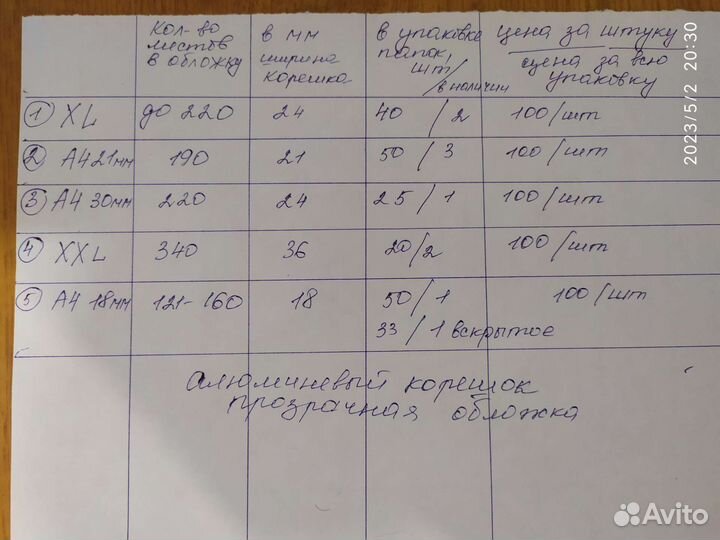 Кол-во листов в обложку
в мм ширина корешка
в упаковке папок, шт / в наличии
цена за штуку
цена за всю упаковку
1 XL до 220 24 40 / 2 100/шт
2 А4 21мм 190 21 50 / 3 100/шт
3 А4 30мм 220 24 25 / 1 100/шт
4 XXL 340 36 20/2 100/шт
5 А4 18мм 121-160 18 50 / 1 100/шт
33 / 1 вскрытое
алюминевый корешок
прозрачная обложка
2023/5/2 20:30
Avito